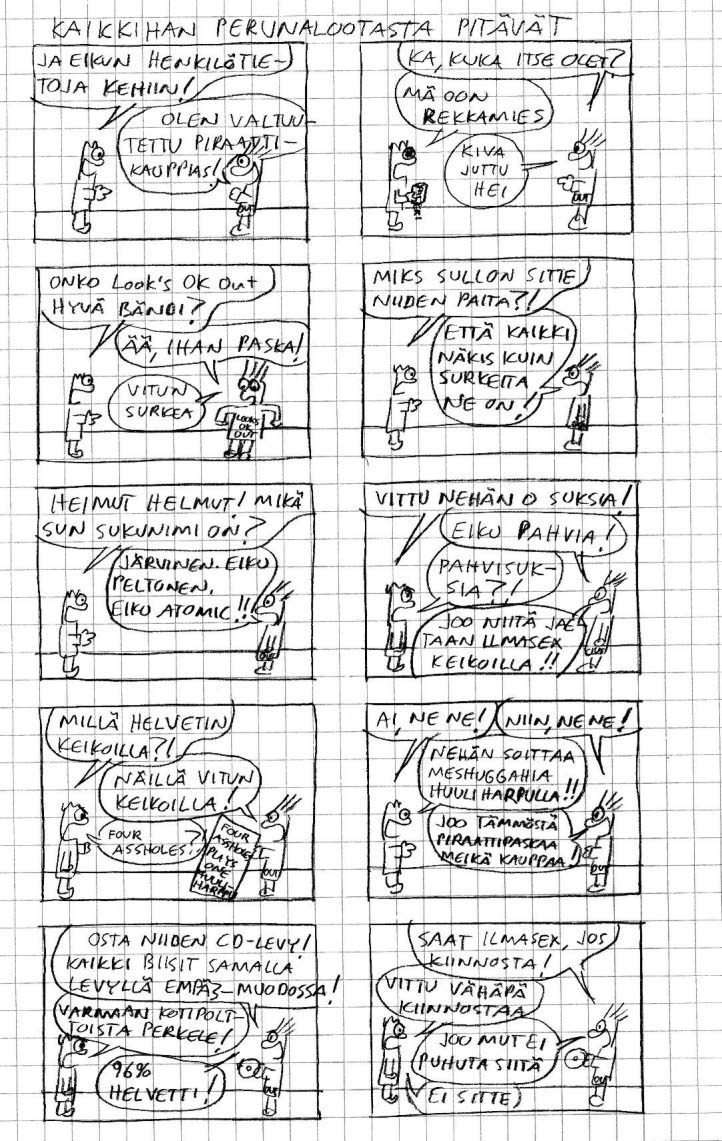 KAIKKIHAN PERUNALOOTASTA PITÄVÄT
JA EIKUN HENKILÖTIE-
TOJA KEHIIN!
OLEN VALTUU-
TETTU PIRAATTI-
KAUPPIAS!
OUT
KA, KUKA ITSE OLET?
MÄ OON
REKKAMIES
KIVA
JUTTU
HEI
OUT
ONKO Look's OK Out
HYVÄ BÄNDI?
ÄÄ, IHAN PASKA!
VITUN
SURKEA
LOOK'S
OK
OUT
MIKS SULLON SITTE
NIIDEN PAITA?!
ETTÄ KAIKKI
NÄKIS KUIN
SURKEITA
NE ON!
HEIMUT HELMUT! MIKÄ
SUN SUKUNIMI ON?
JÄRVINEN. EIKU
PELTONEN,
EIKU ATOMIC!!
VITTU NEHÄN O SUKSIA!
EIKU PAHVIA!
PAHVISUK-
SIA?!
JOO NIITÄ JAE-
TAAN ILMASEX
KEIKOILLA!!
MILLÄ HELVETIN
KEIKOILLA?!
NÄILLÄ VITUN
KEIKOILLA!
FOUR
ASSHOLES!?
FOUR
ASSHOLES
PLAYS
ONE
HUULI-
HARPPU
OUT
AI, NE NE!
NIIN, NE NE!
NEHÄN SOITTAA
MESHUGGAHIA
HUULIHARPULLA!!
JOO TÄMMÖSTÄ
PIRAATTIPASKAA
MEIKÄ KAUPPAA!
OUT
OSTA NIIDEN CD-LEVY!
KAIKKI BIISIT SAMALLA
LEVYLLÄ EMPÄ3-MUODOSSA!
VARMAAN KOTIPOLT-
TOISTA PERKELE!
96%
HELVETTI!
OUT
SAAT ILMASEX, JOS
KIINNOSTA!
VITTU VÄHÄPÄ
KIINNOSTAA
JOO MUT EI
PUHUTA SIITÄ
EI SITTE
OUT